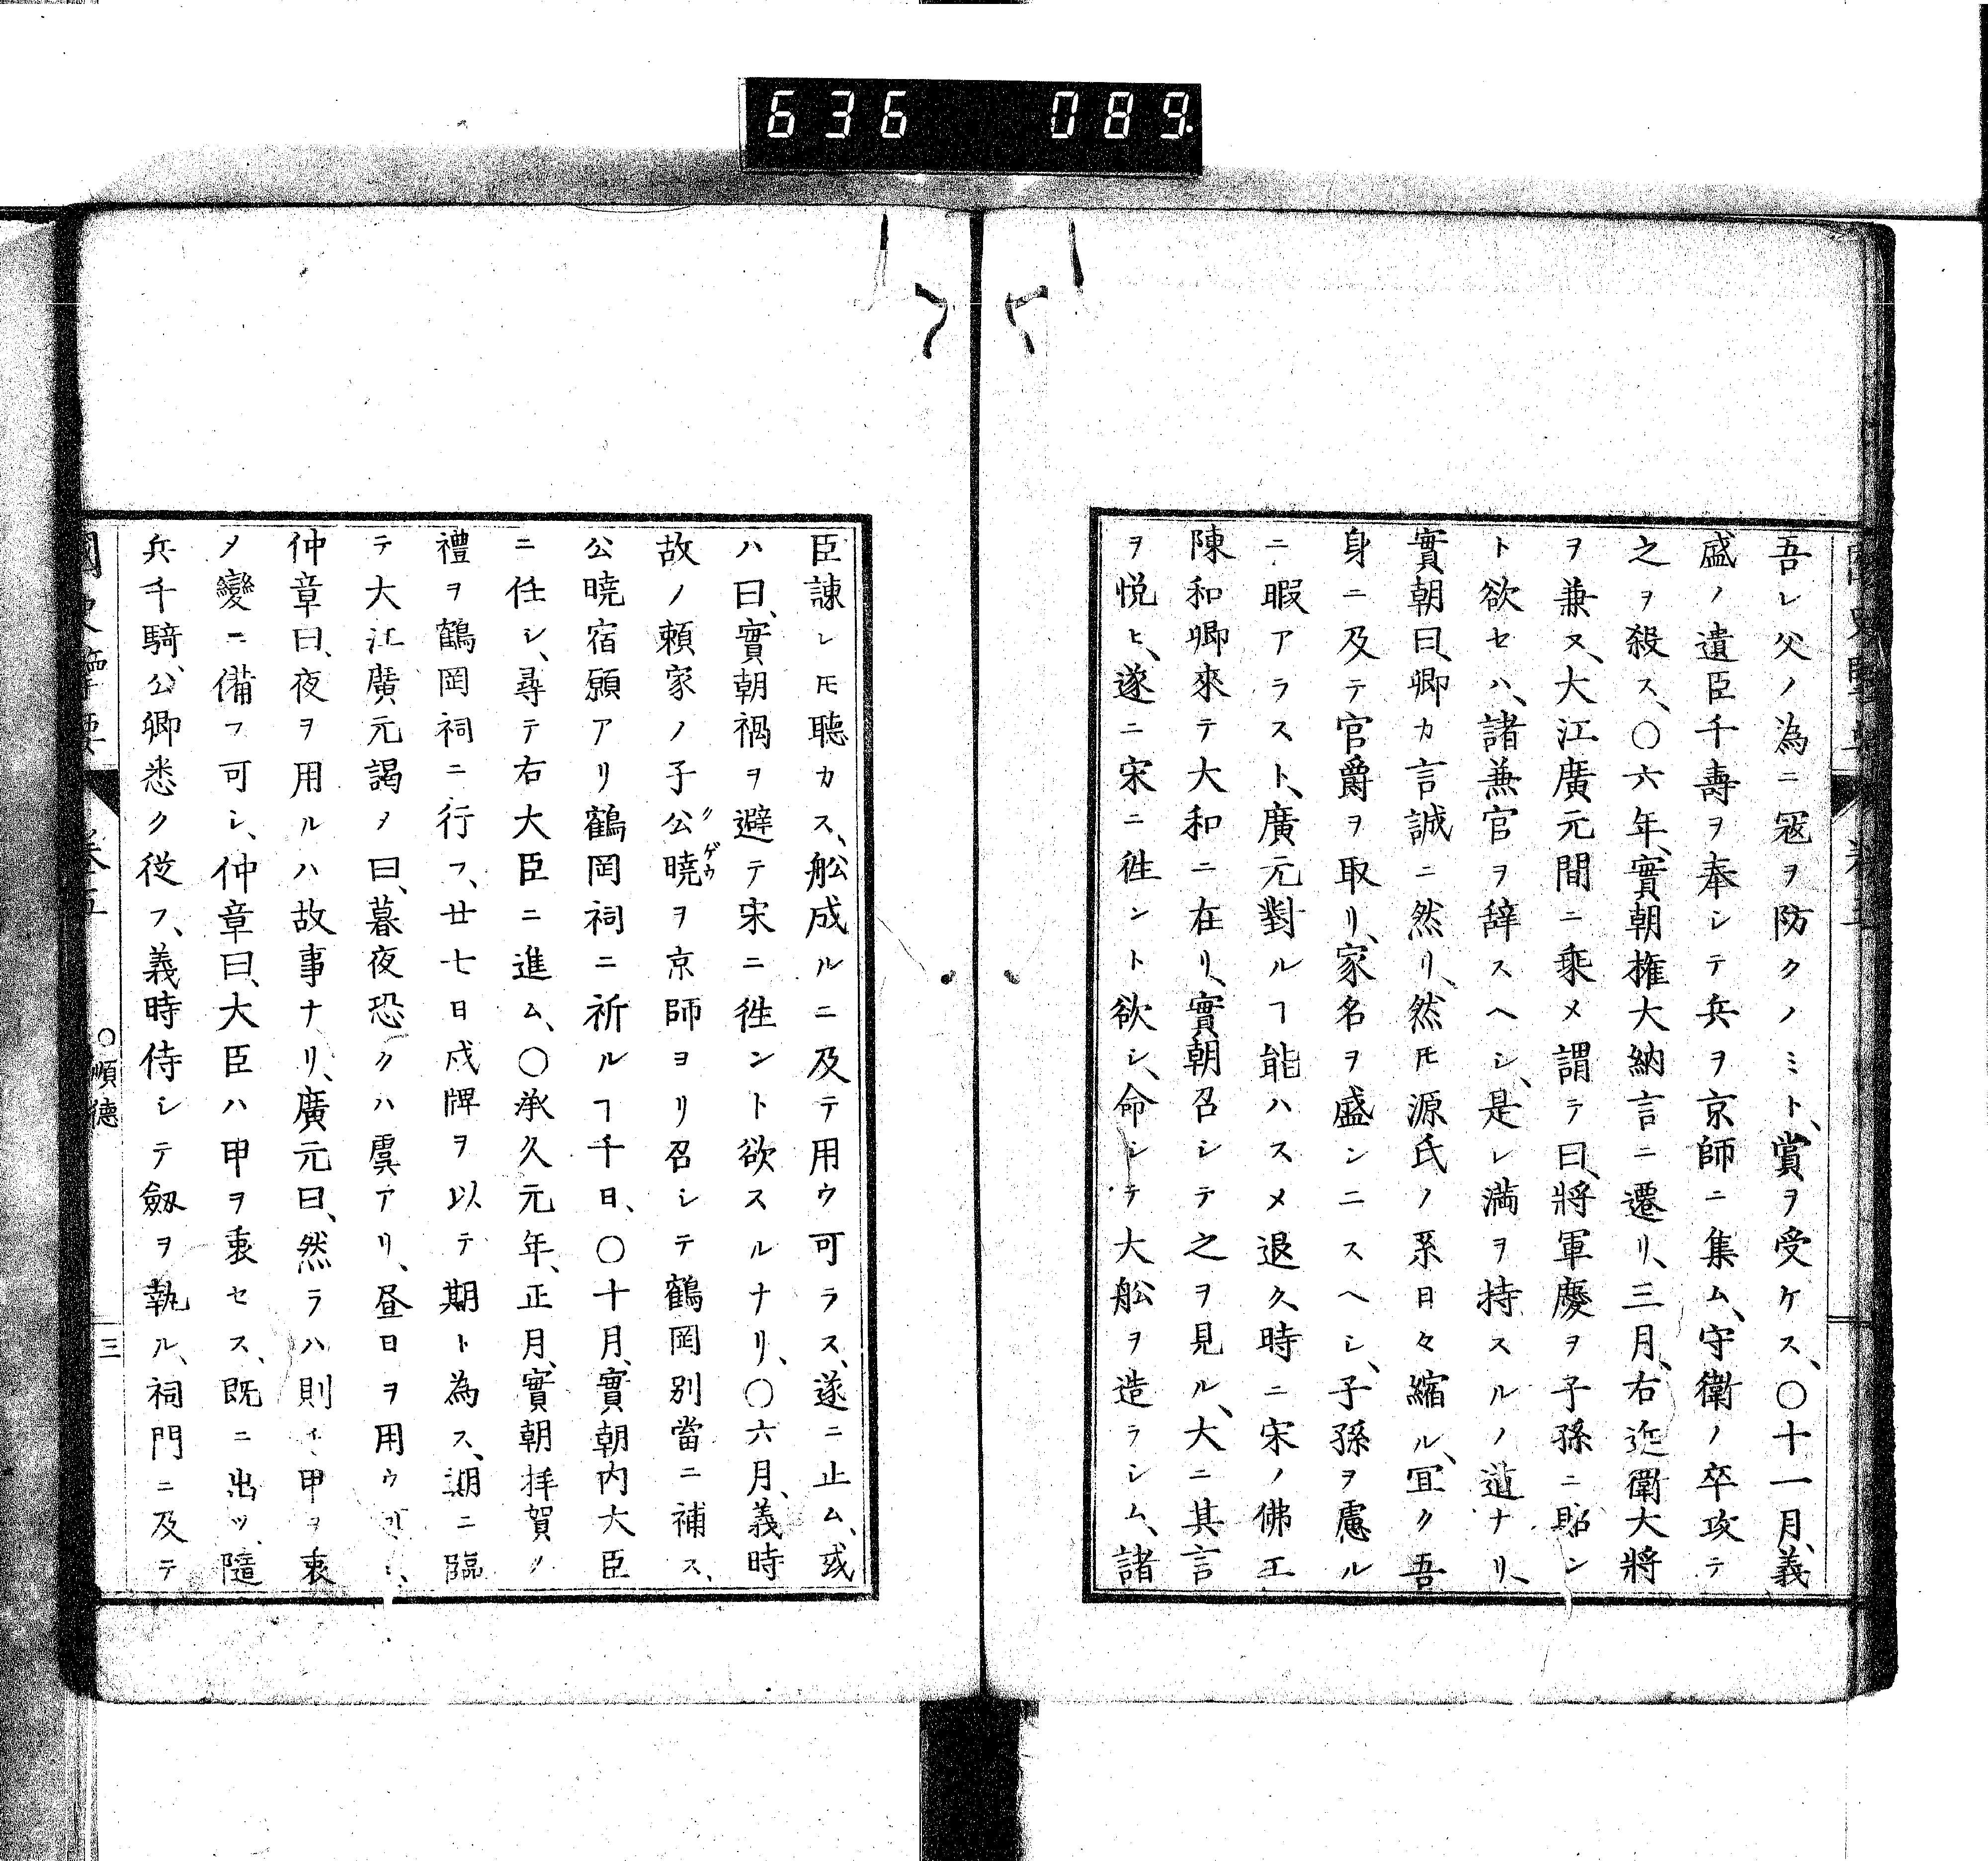 636 089
吾レ父ノ為ニ冦ヲ防クノミト、賞ヲ受ケス、〇十一月、義
盛ノ遺臣千壽ヲ奉シテ兵ヲ京師ニ集ム、守衛ノ卒攻テ
之ヲ殺ス、〇六年、實朝権大納言ニ遷リ、三月、右近衛大將
ヲ兼ヌ、大江廣元間ニ乗メ謂テ曰、將軍慶ヲ子孫ニ貽シ
ト欲セハ、諸兼官ヲ辞スヘシ、是レ満ヲ持スルノ道ナリ、
實朝曰、卿カ言誠ニ然リ、然𪜈源氏ノ系日々縮ル、冝ク吾
身ニ及テ官爵ヲ取リ、家名ヲ盛ンニスヘシ、子孫ヲ慮ル
ニ暇アラスト、廣元對ルヿ能ハスメ退ク、時ニ宋ノ佛工
陳和卿來テ大和ニ在リ、實朝召シテ之ヲ見ル、大ニ其言
ヲ悦ヒ、遂ニ宋ニ徃ント欲シ、命シテ大舩ヲ造ラシム、諸
臣諌レ𪜈聴カス、舩成ルニ及テ用ウ可ラス、遂ニ止ム、或
ハ曰、實朝禍ヲ避テ宋ニ徃ント欲スルナリ、〇六月、義時
故ノ頼家ノ子公暁クゲウヲ京師ヨリ召シテ鶴岡別當ニ補ス、
公暁宿願アリ鶴岡祠ニ祈ルヿ千日、〇十月、實朝内大臣
ニ任シ、尋テ右大臣ニ進ム、〇承久元年、正月、實朝拝賀ノ
禮ヲ鶴岡祠ニ行フ、廿七日戌牌ヲ以テ期ト為ス、期ニ臨
テ大江廣元謁メ曰、暮夜恐クハ虞アリ、昼日ヲ用ウ
仲章曰、夜ヲ用ルハ故事ナリ、廣元曰、然ラハ則イ甲ヲ衷
メ變ニ備フ可シ、仲章曰、大臣ハ甲ヲ衷セス、既ニ出ツ、隨
兵千騎、公卿悉ク従フ、義時侍シテ劔ヲ執ル、祠門ニ及テ
〇順徳
三